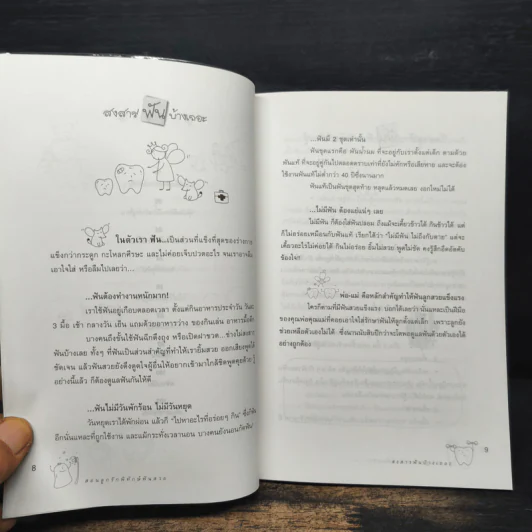 สงสาร ฟัน บ้างเถอะ
ในตัวเรา ฟัน...เป็นส่วนที่แข็งที่สุดของร่างกาย
แข็งกว่ากระดูก กะโหลกศีรษะ และไม่ค่อยเจ็บปวดอะไร จนเราอาจไม่
เอาใจใส่ หรือลืมไปเลยว่า...
...ฟันต้องทำงานหนักมาก!
เราใช้ฟันอยู่เกือบตลอดเวลา ตั้งแต่กินอาหารประจำวัน วันละ
3 มื้อ เช้า กลางวัน เย็น แถมด้วยอาหารว่าง ของกินเล่น อาหารมื้อดึก
บางคนถึงขั้นใช้ฟันฉีกถึงถุง หรือเปิดฝาขวด...ช่างไม่สงสาร
ฟันบ้างเลย ทั้งๆ ที่ฟันเป็นส่วนสำคัญที่ทำให้เรายิ้มสวย ออกเสียงพูดได้
ชัดเจน แล้วฟันสวยยังดึงดูดใจผู้อื่นให้อยากเข้ามาใกล้ชิดพูดคุยด้วย
อย่างนี้แล้ว ก็ต้องดูแลฟันกันให้ดี
...ฟันไม่มีวันพักร้อน ไม่มีวันหยุด
วันหยุดเราได้พักผ่อน แล้วก็ "ไปหาอะไรที่อร่อยๆ กิน" ซึ่งก็คือ
อีกนั่นแหละที่ถูกใช้งาน และแม้กระทั่งเวลานอน บางคนยังนอนกัดฟัน
8
สอนลูกรักพิทักษ์ฟันสวย
...ฟันมี 2 ชุดเท่านั้น
ฟันชุดแรกคือ ฟันน้ำนม ที่จะอยู่กับเราตั้งแต่เด็ก ตามด้วย
ฟันแท้ ที่จะอยู่คู่กันไปตลอดตราบเท่าที่ยังไม่หักหรือเสียหาย และจะต้อง
ใช้งานฟันแท้ไม่ต่ำกว่า 40 ปีขึ้นแน่มาก
ฟันแท้เป็นฟันชุดสุดท้าย หลุดแล้วหมดเลย งอกใหม่ไม่ได้
...ไม่มีฟัน ต้องแย่แน่ๆ เลย
ถ้าไม่มีฟัน ก็ต้องใส่ฟันปลอม ถึงแม้จะเคี้ยวข้าวได้ กินข้าวได้ แต่
ก็ไม่อร่อยเหมือนกับฟันแท้ เรียกได้ว่า "ไม่มีฟัน ไม่ถึงกับตาย" แต่จะ
เคี้ยวอะไรไม่ค่อยได้ กินไม่อร่อย ยิ้มไม่สวย พูดไม่ชัด คงรู้สึกอึดอัดคับ
ข้องใจ!
พ่อ-แม่ คือหลักสำคัญทำให้ฟันลูกสวยแข็งแรง
ใครก็ตามที่มีฟันสวยแข็งแรง บอกได้เลยว่า นั่นแหละเป็นฝีมือ
ของคุณพ่อคุณแม่ที่คอยเอาใจใส่รักษาฟันให้ลูกตั้งแต่เล็ก เพราะลูกยัง
ช่วยเหลือตัวเองไม่ได้
ได้
อย่างถูกต้อง
9